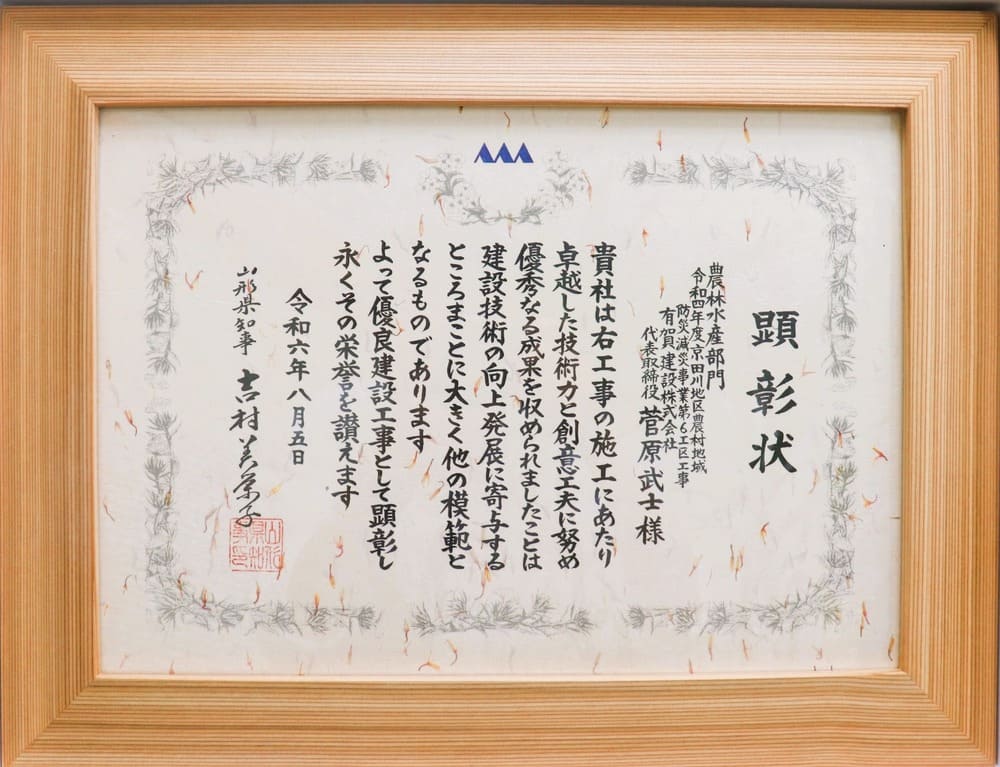 顕彰状
農林水産部門
令和四年度京田川地区農村地域
防災減災事業第6工区工事
有賀建設株式会社
代表取締役 菅原武士様
貴社は右工事の施工にあたり
卓越した技術力と創意工夫に努め
優秀なる成果を収められましたことは
建設技術の向上発展に寄与する
ところまことに大きく他の模範と
なるものであります
よって優良建設工事として顕彰し
永くその栄誉を讃えます
令和六年八月五日
山形県知事 吉村美栄子